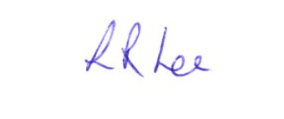 R R Lee